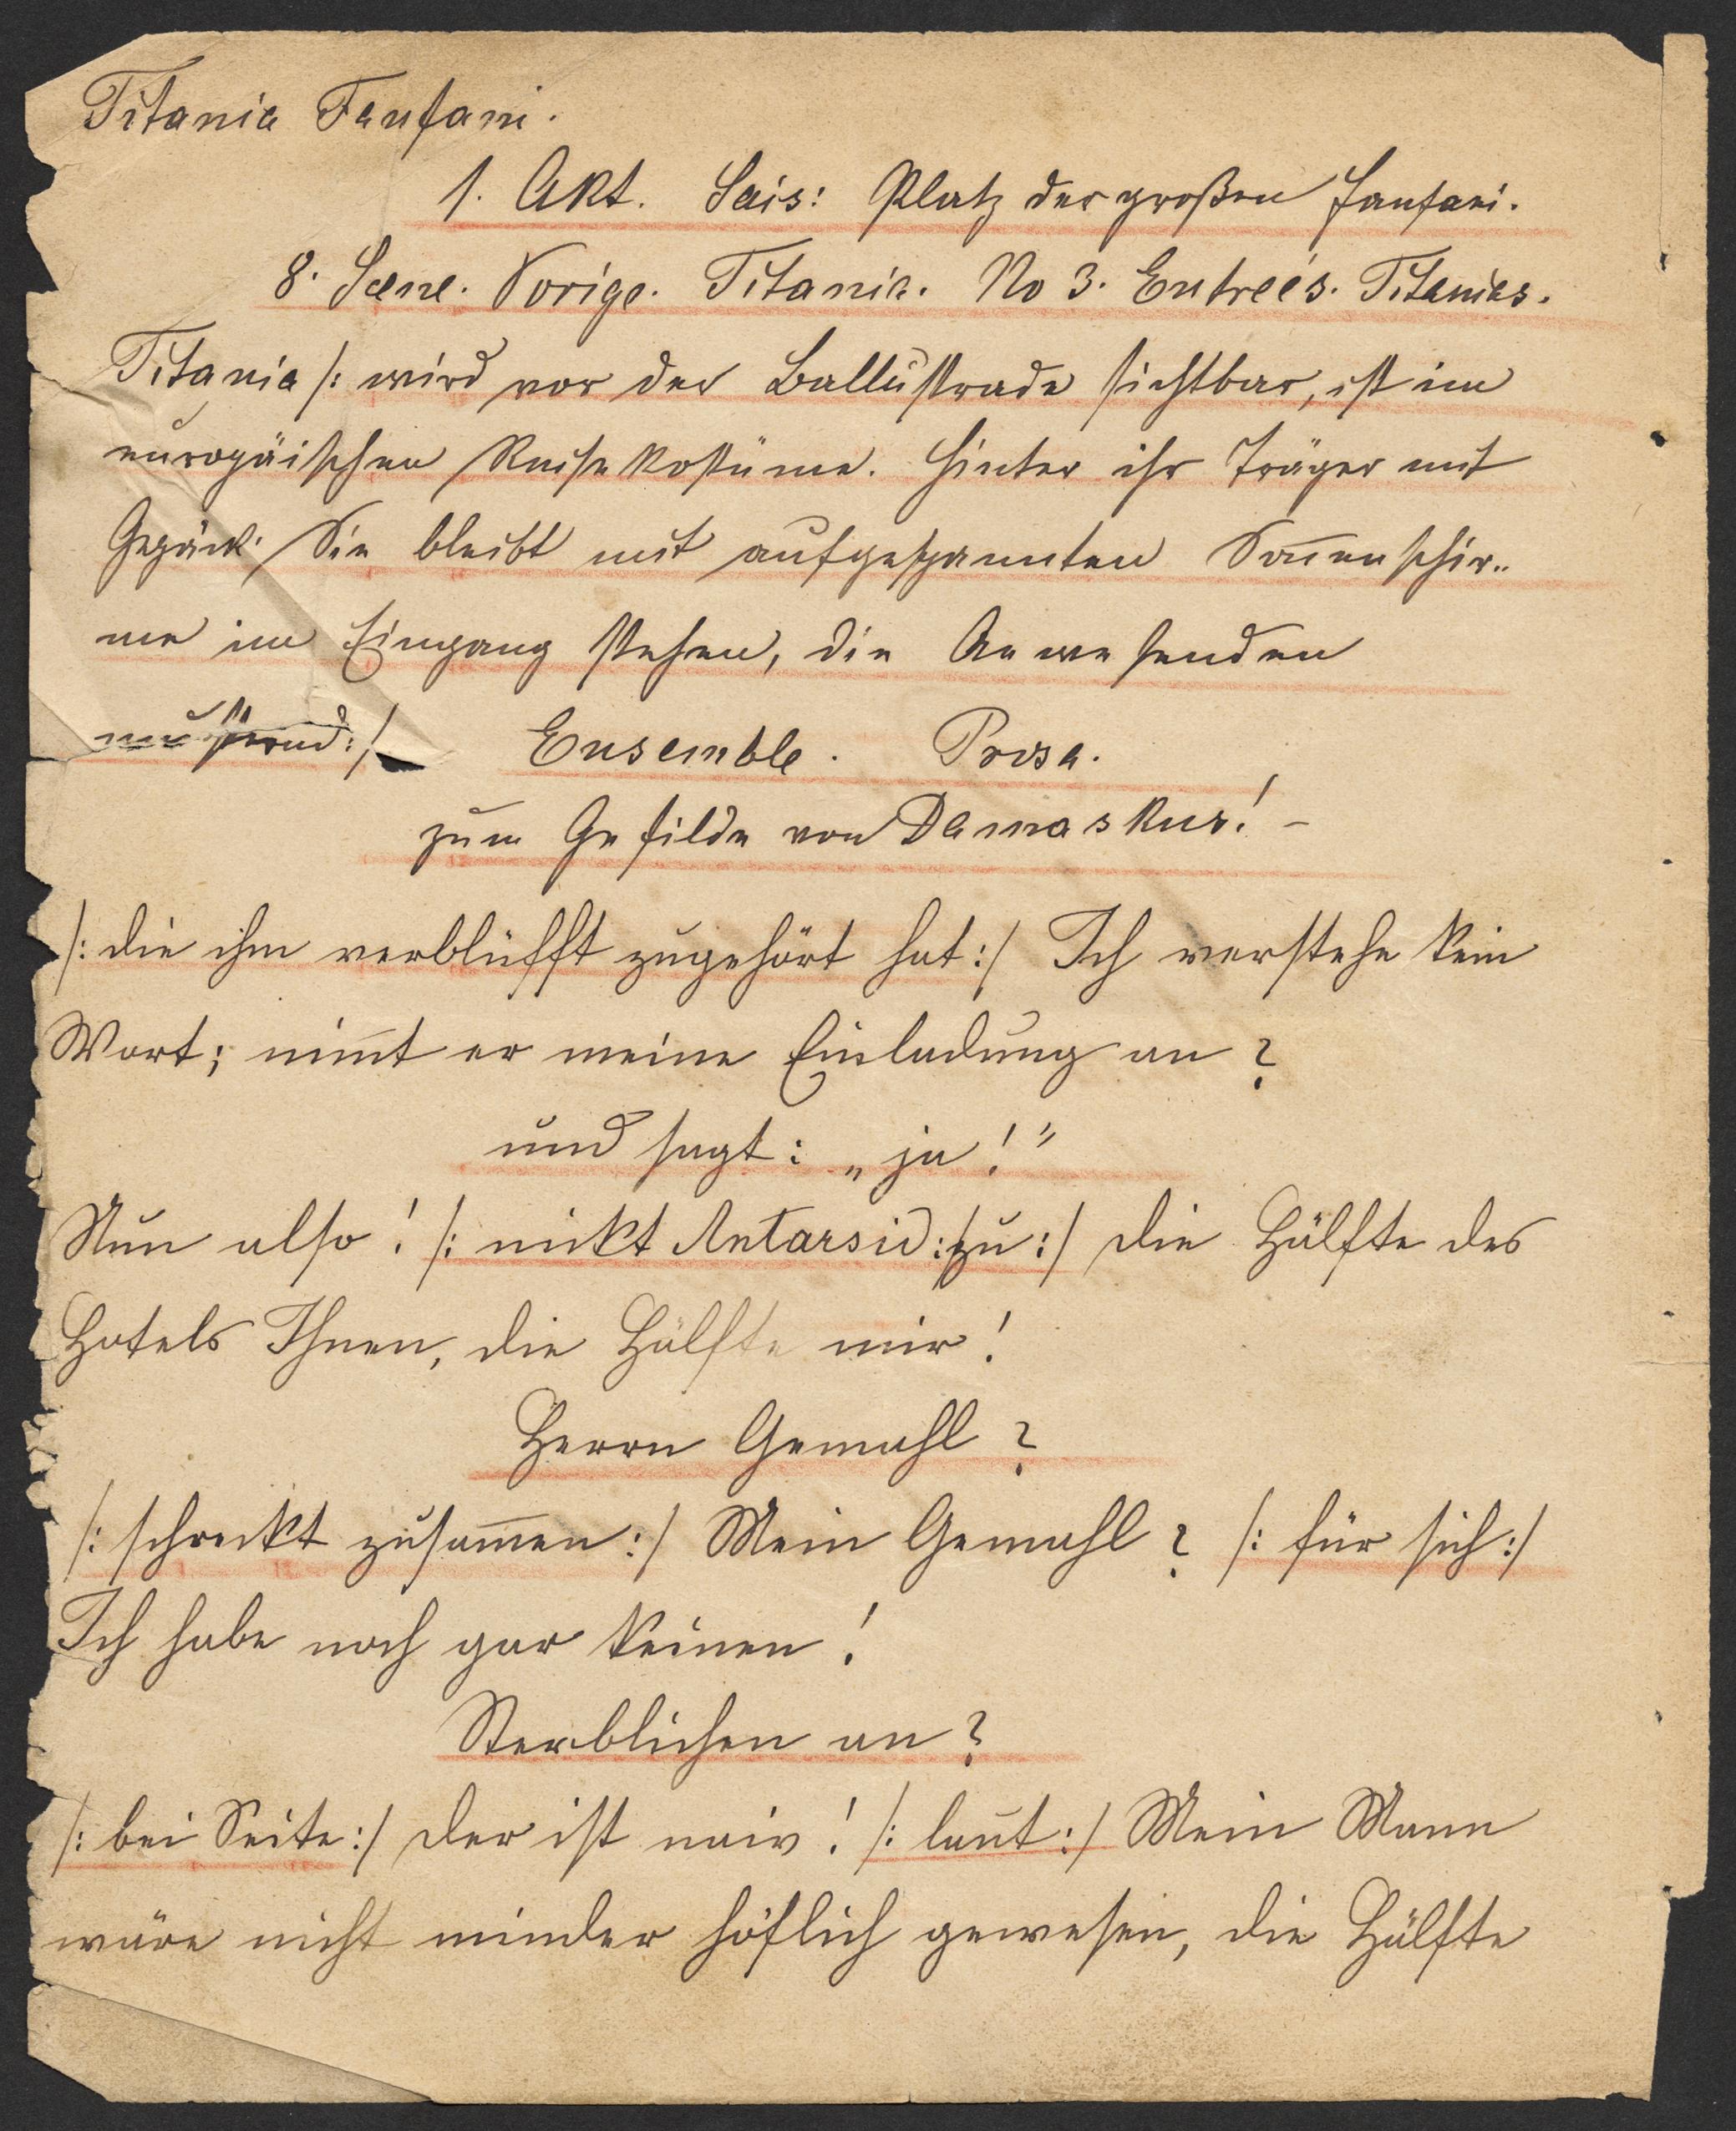 Titania Fanfani.
1. Akt. Sais: Platz der großen Fanfani.
8. Scene. Vorige. Titania. No 3. Entreés. Titanias.
Titania /: wird vor der Ballustrade sichtbar, ist im
europäischen Reisekostüme. Hinter ihr Träger mit
Gepäck. Sie bleibt mit aufgespannten Soñenschir-
me im Eingang stehen, die Anwesenden
musternd :/ Ensemble. Prosa.
zum Gefilde von Damaskus! –
/: die ihm verblüfft zugehört hat :/ Ich verstehe kein
Wort; nim̄t er meine Einladung an?
und sagt: „ja!"
Nun also! /: nickt Antarsid :/ zu :/ die Hälfte des
Hotels Ihnen, die Hälfte mir!
Herrn Gemahl?
/: schreckt zusam̄en :/ Mein Gemahl? /: für sich :/
Ich habe noch gar keinen!
Sterblichen an?
/: bei Seite :/ der ist naiv! /: laut :/ Mein Mann
wäre nicht minder höflich gewesen, die Hälfte